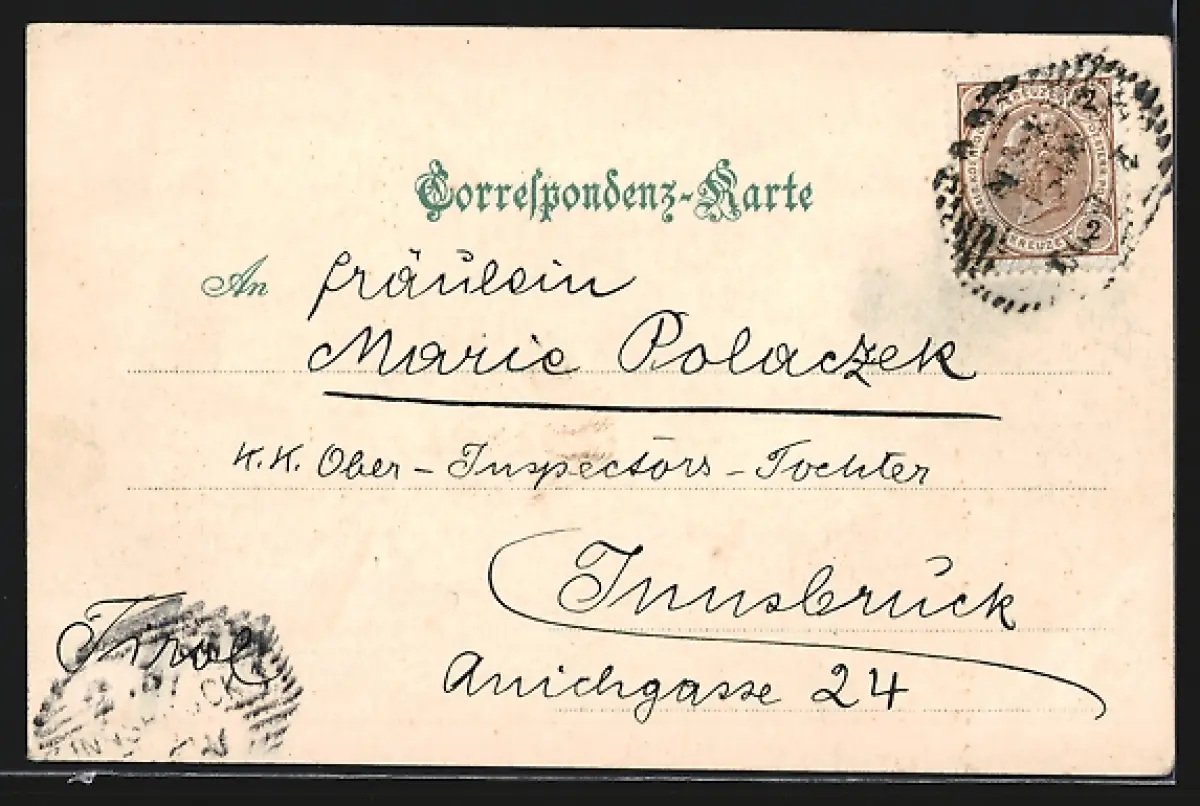 Correspondenz-Karte
2
KREUZER
2
An Fräulein
Marie Polaczek
K.K. Ober-Inspectors-Tochter
Innsbruck
Anichgasse 24
Tirol